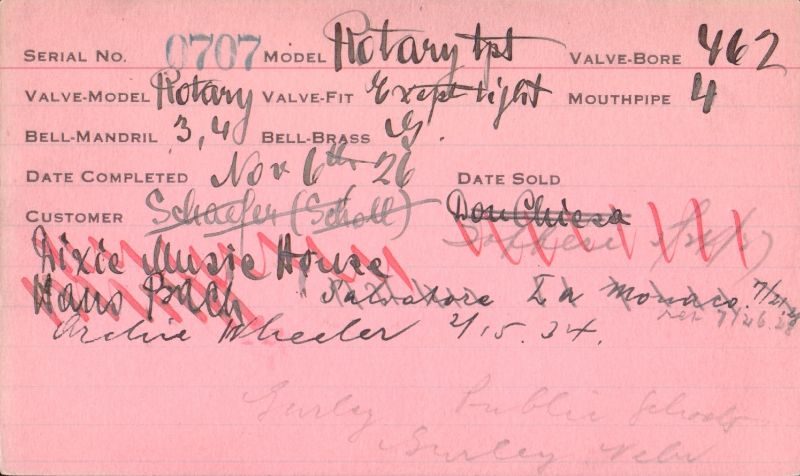 SERIAL NO. 0707 MODEL Rotary tpt VALVE-BORE 462
VALVE-MODEL Rotary VALVE-FIT Exept tight MOUTHPIPE 4
BELL-MANDRIL 3,4 BELL-BRASS G.
DATE COMPLETED Nov 6th, 26 DATE SOLD
CUSTOMER Schaefer (Scholl) Don Chiesa
Dixie Music House
Hans Bach Salvatore La Monaco. 7/21.28
ret 7/26.28
Archie Wheeler 2/15.34.
Gurley Public Schools
Gurley Nebr